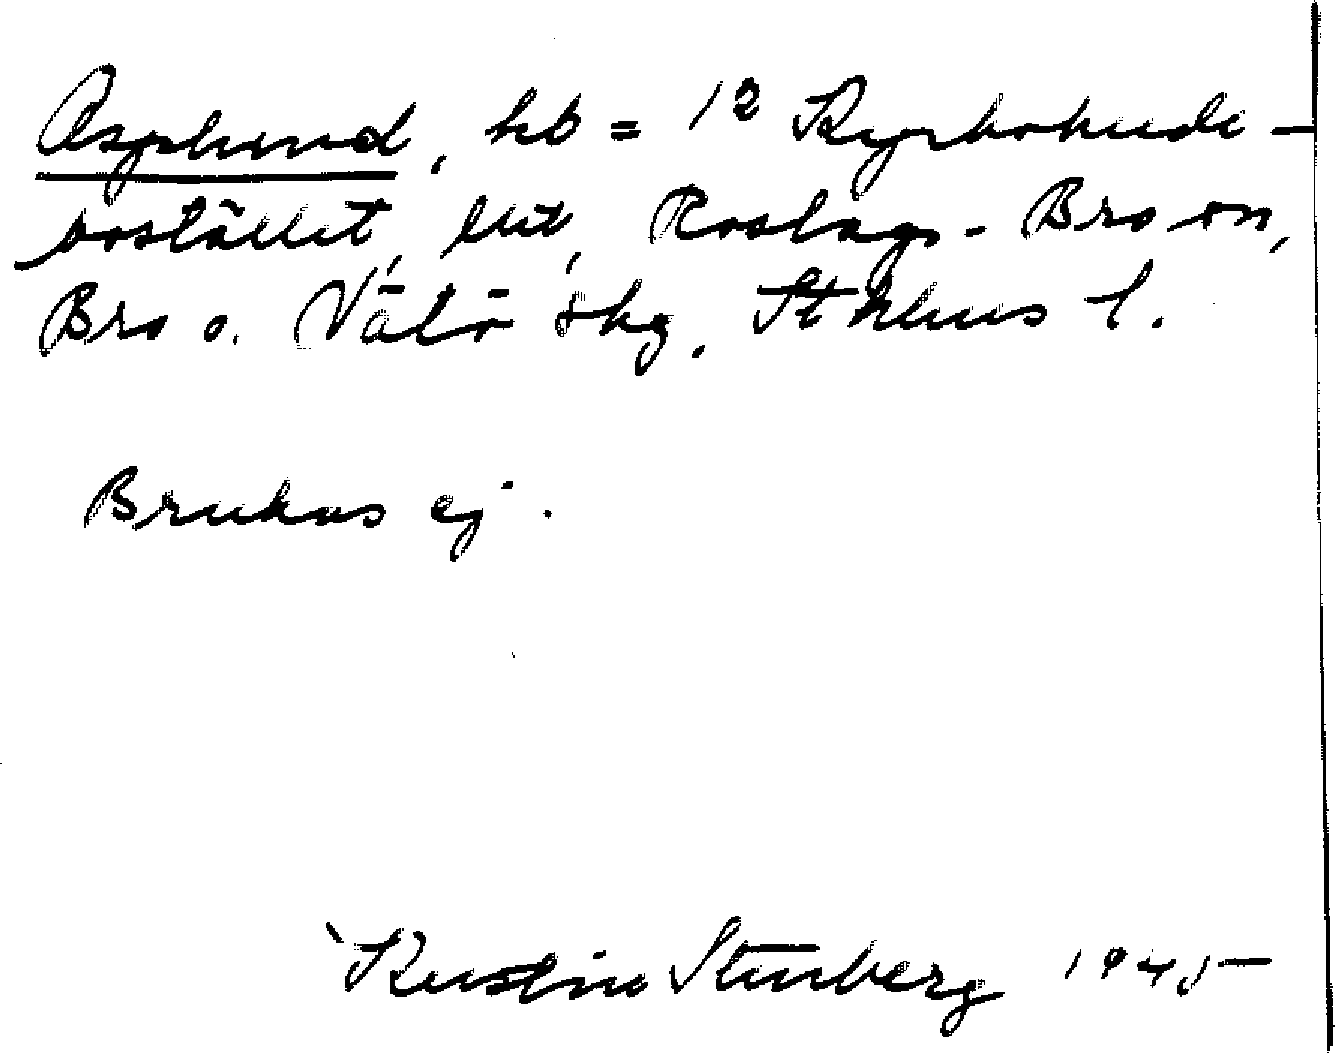 Asplund, hb = 1² Kyrkoherde-
bostället, lht, Roslags-Bro sn,
Bro o. Vätö skg. Sthlms l.
Brukas ej.
Kerstin Stenberg 1945